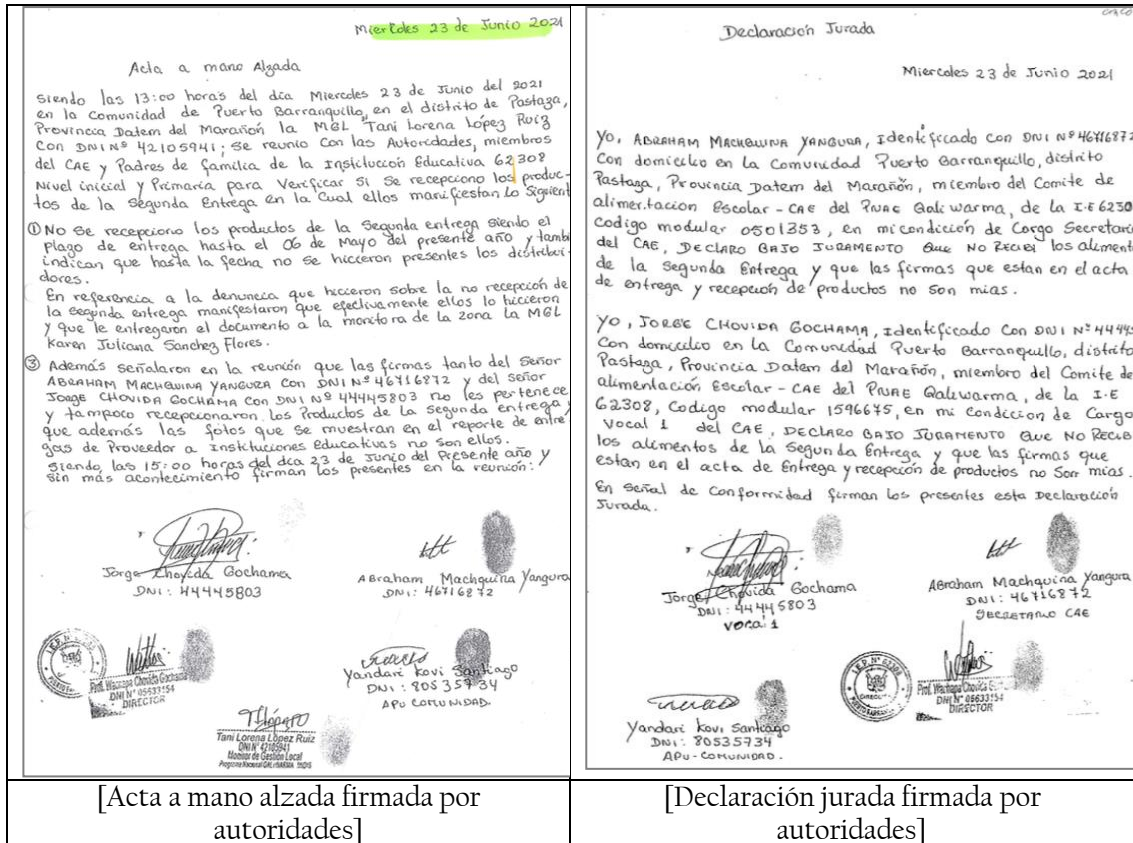 Miercoles 23 de Junio 2021
Acta a mano Alzada
siendo las 13:00 horas del dia Miercoles 23 de Junio del 2021
en la Comunidad de Puerto Barranquillo, en el distrito de Pastaza,
Provincia Datem del Marañón la MGL Tani Lorena López Ruiz
Con DNI Nº 42105941; se reunio con las Autoridades, miembros
del CAE y Padres de familia de la Institución Educativa 62308
Nivel inicial y Primaria para Verificar si se recepciono los produc-
tos de la Segunda Entrega en la Cual ellos manifiestan lo Siguient
① No se recepciono los productos de la Segunda entrega siendo el
plazo de entrega hasta el 06 de Mayo del presente año y tambi
indican que hasta la fecha no se hicieron presentes los distribui-
dores.
En referencia a la denuncia que hicieron sobre la no recepción de
la segunda entrega manifestaron que efectivamente ellos lo hicieron
y que le entregaron el documento a la monitora de la zona la MGL
Karen Juliana Sanchez Flores.
③ Además señalaron en la reunión que las firmas tanto del Señor
ABRAHAM MACHQUINA YANGURA con DNI Nº 46716872 y del señor
JORGE CHOVIDA GOCHAMA con DNI Nº 44445803 no les pertenece
y tampoco recepcionaron los Productos de la Segunda entrega y
que además las fotos que se muestran en el reporte de entre
gas de Proveedor a Instituciones Educativas no son ellos.
siendo las 15:00 horas del dia 23 de Junio del Presente año y
sin más acontecimiento firman los presentes en la reunión:
Jorge Chovida Gochama
DNI: 44445803
ABraham Machquina Yangura
DNI: 46716872
Prof. Wachapa Chovida Gochama
DNI Nº 05633154
DIRECTOR
Yandari Kovi Santiago
DNI: 80535734
APU COMUNIDAD.
Tani Lorena López Ruiz
DNI Nº 42105941
Monitor de Gestión Local
Programa Nacional QALI WARMA MIDIS
[Acta a mano alzada firmada por
autoridades]
Declaración Jurada
Miercoles 23 de Junio 2021
Yo, ABRAHAM MACHQUINA YANGURA, Identificado con DNI Nº 46716872
Con domicilio en la Comunidad Puerto Barranquillo, distrito
Pastaza, Provincia Datem del Marañón, miembro del Comite de
alimentacion Escolar - CAE del PNAE Qaliwarma, de la I.E 6230
Codigo modular 0501353, en mi condición de Cargo Secretario
del CAE, DECLARO BAJO JURAMENTO QUE NO RECIBI los aliment
de la Segunda Entrega y que las firmas que estan en el acta
de entrega y recepción de productos no son mias.
YO, JORGE CHOVIDA GOCHAMA, Identificado con DNI Nº 44445
Con domicilio en la Comunidad Puerto Barranquillo, distrito
Pastaza, Provincia Datem del Marañón, miembro del Comite de
alimentación Escolar - CAE del PNAE Qaliwarma, de la I.E
62308, Codigo modular 1596675, en mi Condicion de Cargo
Vocal 1 del CAE, DECLARO BAJO JURAMENTO QUE NO RECIB
los alimentos de la Segunda Entrega y que las firmas que
estan en el acta de Entrega y recepción de productos no Son mias.
En Señal de Conformidad firman los presentes esta Declaración
Jurada.
Jorge Chovida Gochama
DNI: 44445803
Vocal 1
ABraham Machquina Yangura
DNI: 46716872
SECRETARIO CAE
DNI Nº 05633154
DIRECTOR
Yandari Kovi Santiago
DNI: 80535734
APU-COMUNIDAD.
[Declaración jurada firmada por
autoridades]